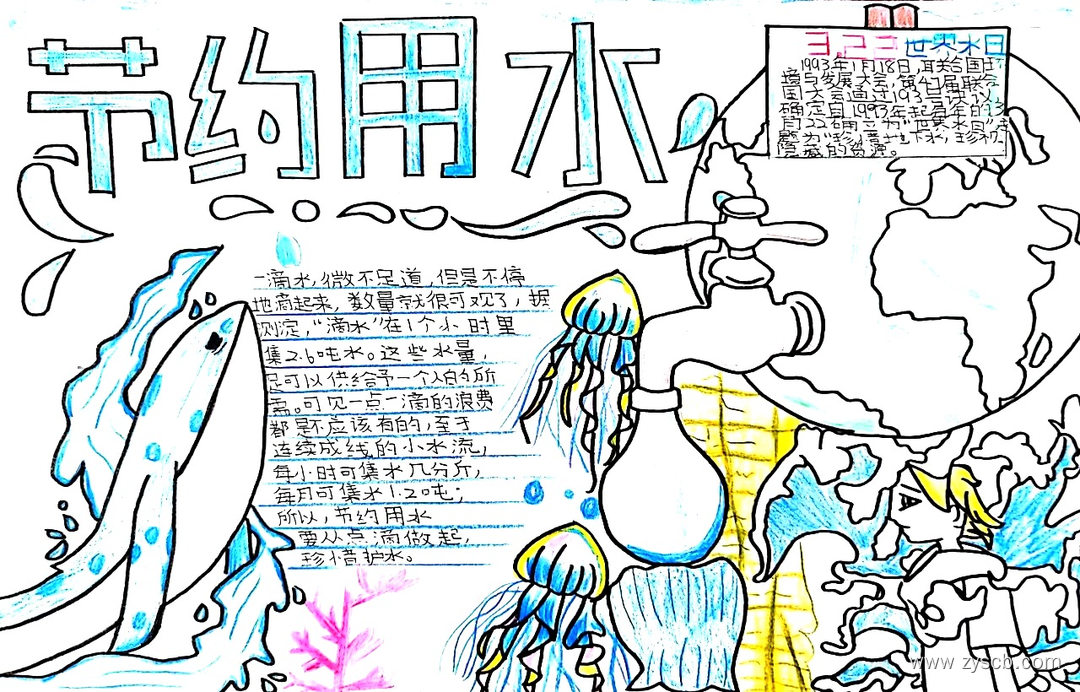 节约用水
3.22世界水日
1993年1月18日,联合国环
境与发展大会,第47届联合
国大会通过193号决议,
确定自1993年起每年的3
月22确定为"世界水日"主
题为"珍惜地下水,珍视
隐藏的资源。
一滴水,微不足道,但是不停
地滴起来,数量就很可观了,据
测定,"滴水"在1个小时里
集2.6吨水。这些水量,
足可以供给予一个人的所
需。可见一点一滴的浪费
都是不应该有的,至于
连续成线的小水流,
每小时可集水几公斤,
每月可集水1.2吨;
所以,节约用水
要从点滴做起,
珍惜护水。
www.zyscb.com